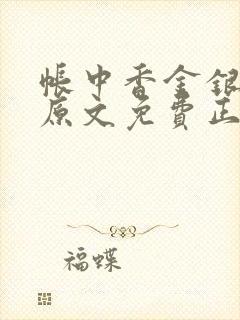 帳中香金銀
原文免費正
福蝶